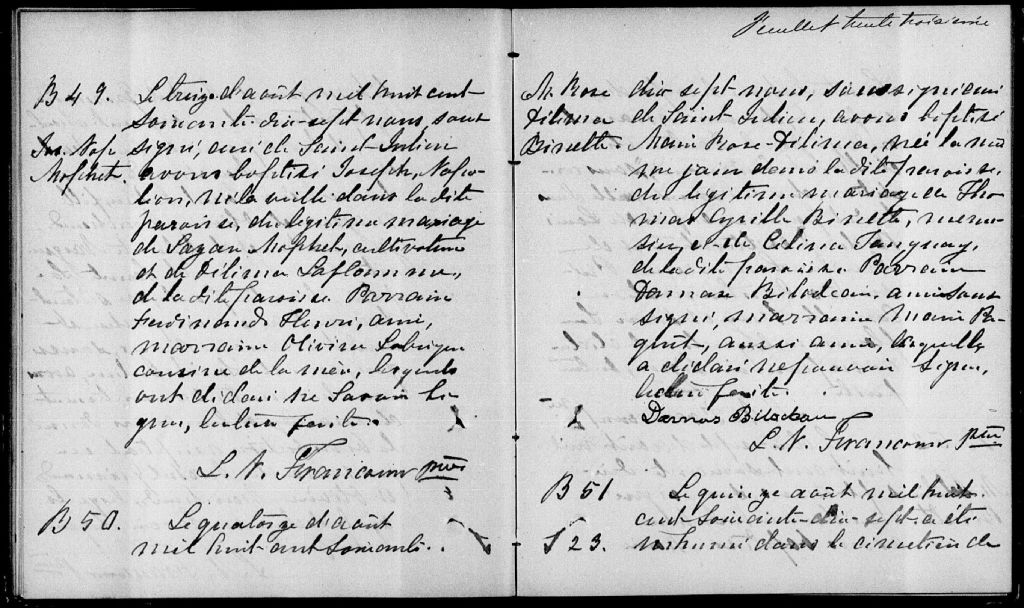 B 49.
Jos. Nap.
Le treize d'août mil huit cent
soixante-dix-sept nous, sous
signé, curé de Saint Julien
avons baptisé Joseph, Napo-
léon, né la veille dans la dite
paroisse, du légitime mariage
de Lazare, cultivateur
et de Délima Laflamme,
de la dite paroisse Parrain
Ferdinand Henri, ami,
marraine Olivine
cousine de la mère, lesquels
ont déclaré ne savoir si-
gner, lecture faite.
L. N. Francoeur ptre
B 50.
Le quatorze d'août
mil huit-cent soixante.
Feuillet trente troisième
M. Rose
Délima
Binette.
dix sept nous, soussigné curé
de Saint Julien, avons baptisé
Marie Rose-Délima, née le mê
me jour dans la dite paroisse,
du légitime mariage de Tho
mas Cyrille Binette, menui-
sier, et de Célina Tanguay,
de la dite paroisse Parrain
Damase Bilodeau, ami sous
signé, marraine Marie Pa-
quet, aussi amie, laquelle
a déclaré ne pouvoir signer,
lecture faite.
Damas Bilodeau
L. N. Francoeur ptre
B 51
S 23.
Le quinze août mil huit
cent soixante-dix-sept a été
inhumé dans le cimetière de